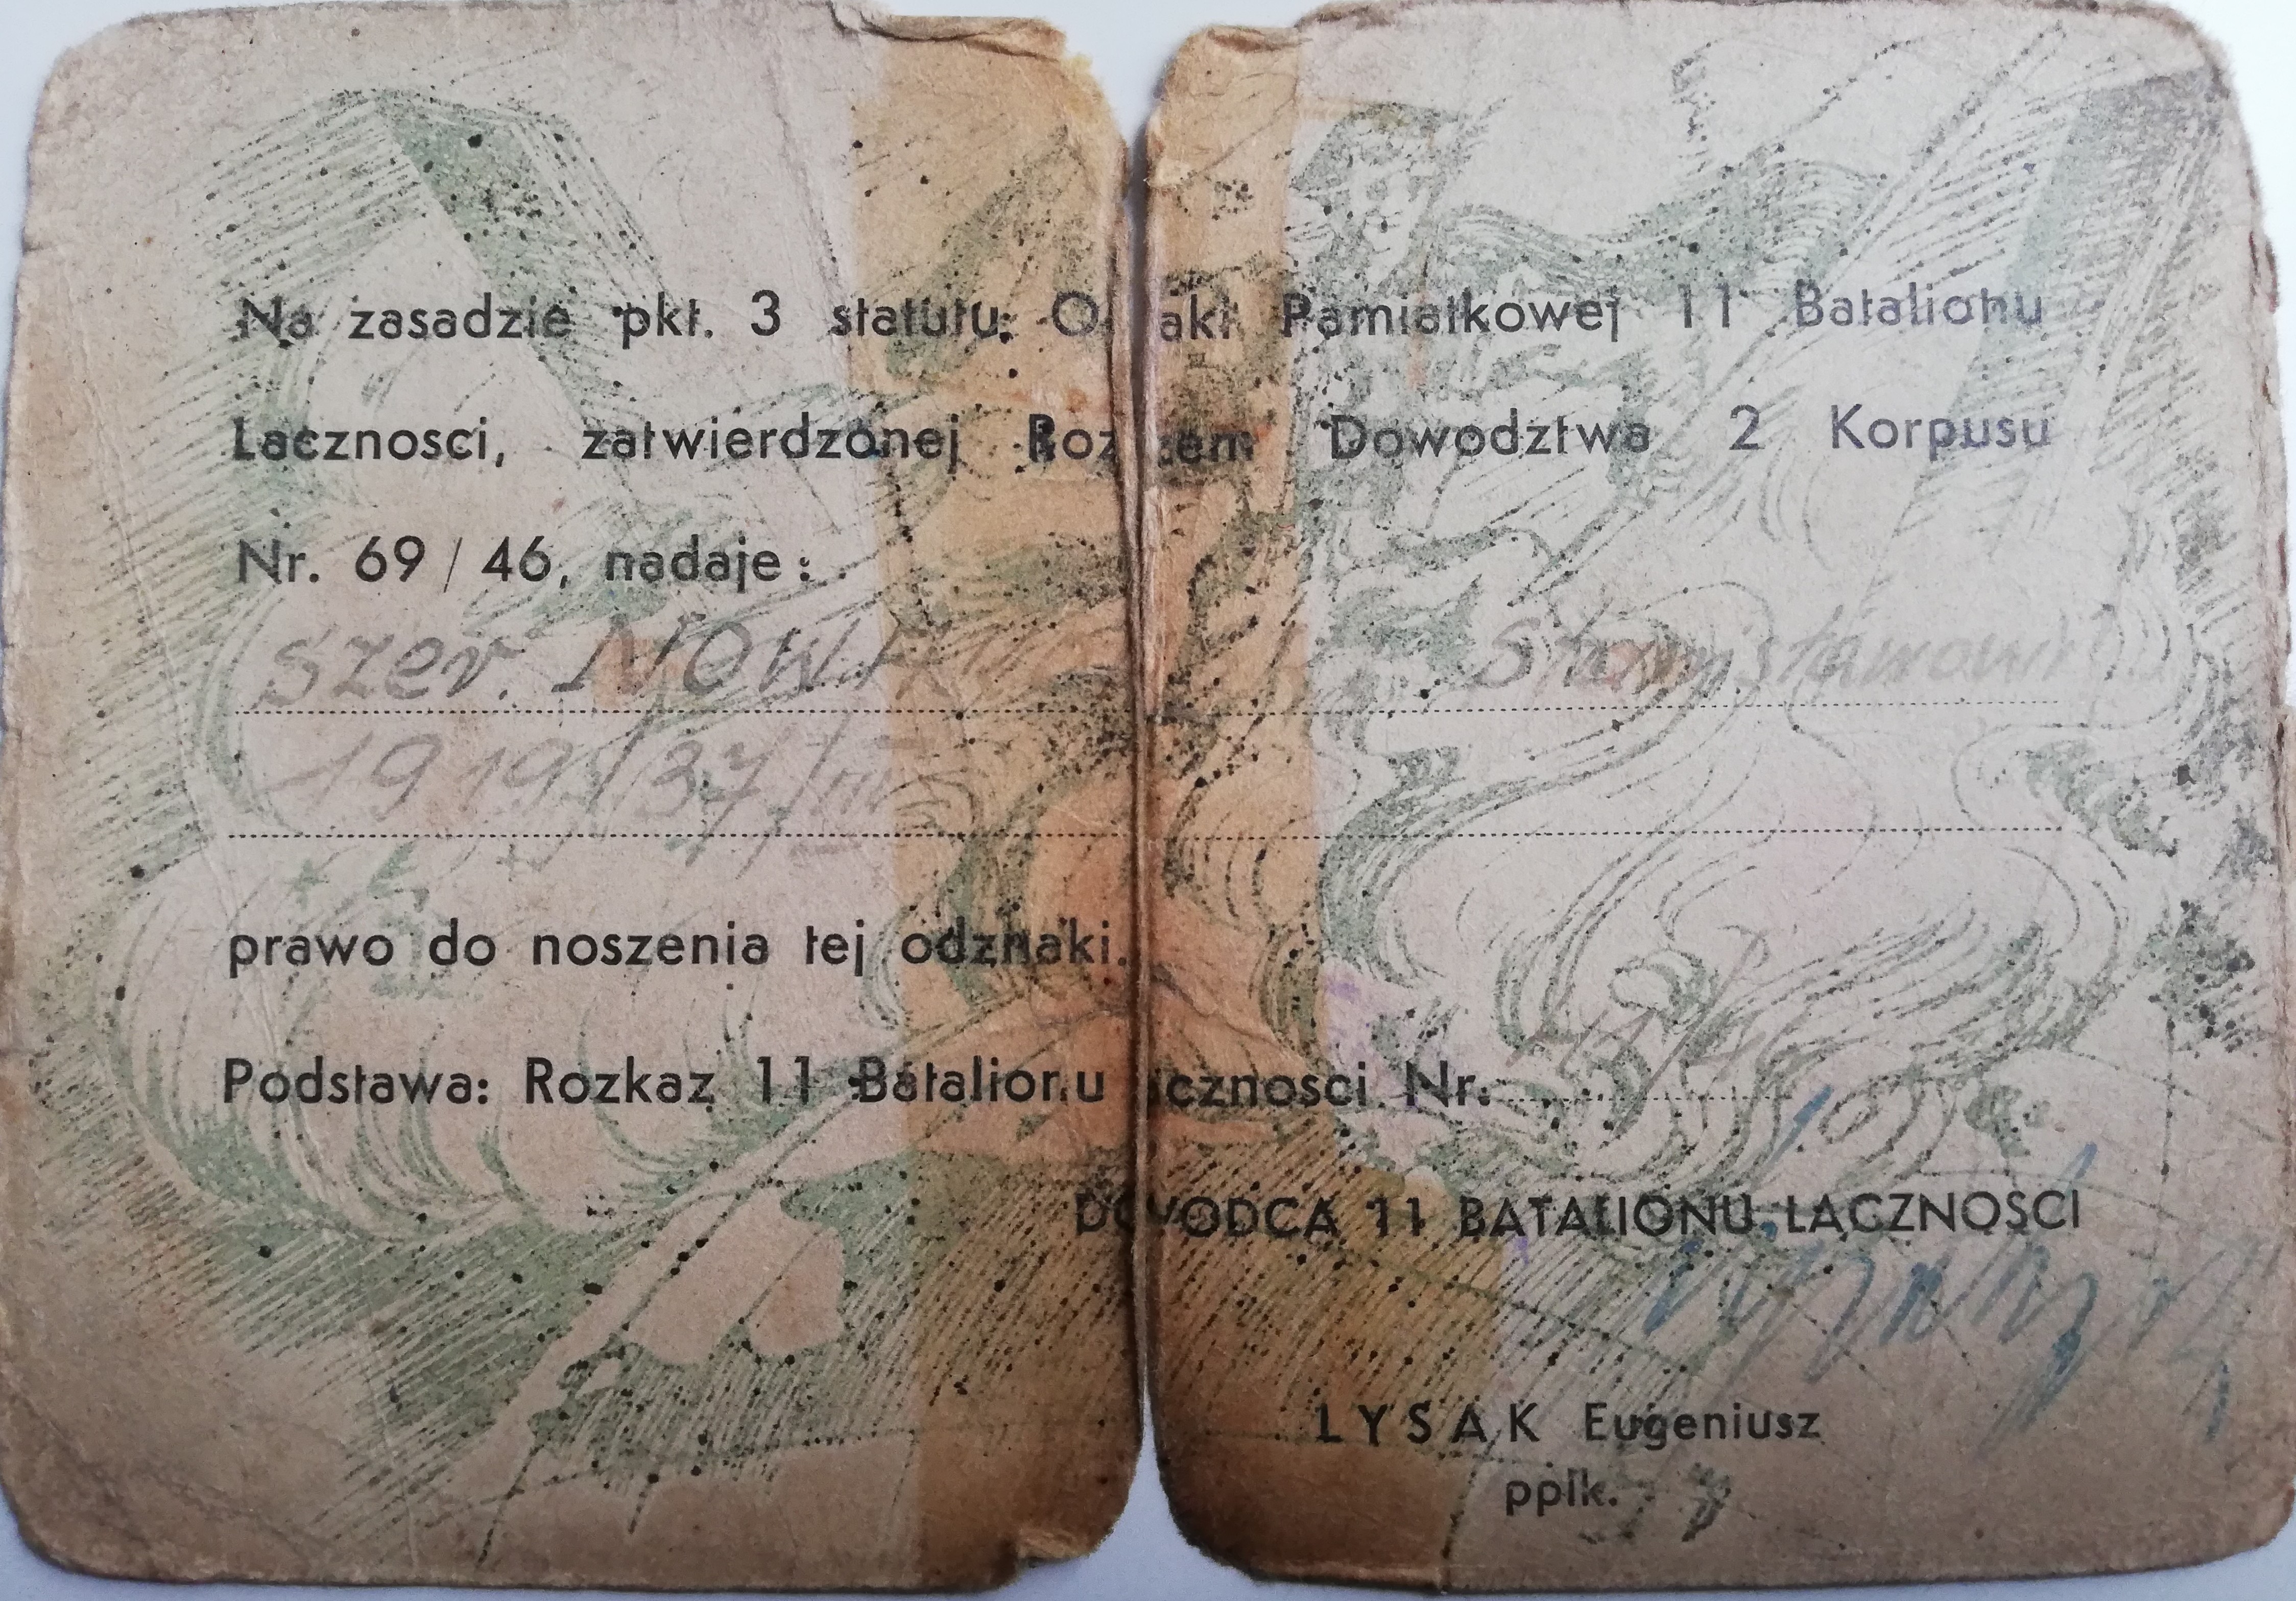 Na zasadzie pkt. 3 statutu O aki Pamiatkowej 11 Batalionu
Lacznosci, zatwierdzonej Roz em Dowodztwa 2 Korpusu
Nr. 69 / 46, nadaje:
szer. Stanisławowi
1919/37/III
prawo do noszenia tej odznaki.
Podstawa: Rozkaz 11 Batalionu cznosci Nr.
DOWODCA 11 BATALIONU LACZNOSCI
LYSAK Eugeniusz
pplk.